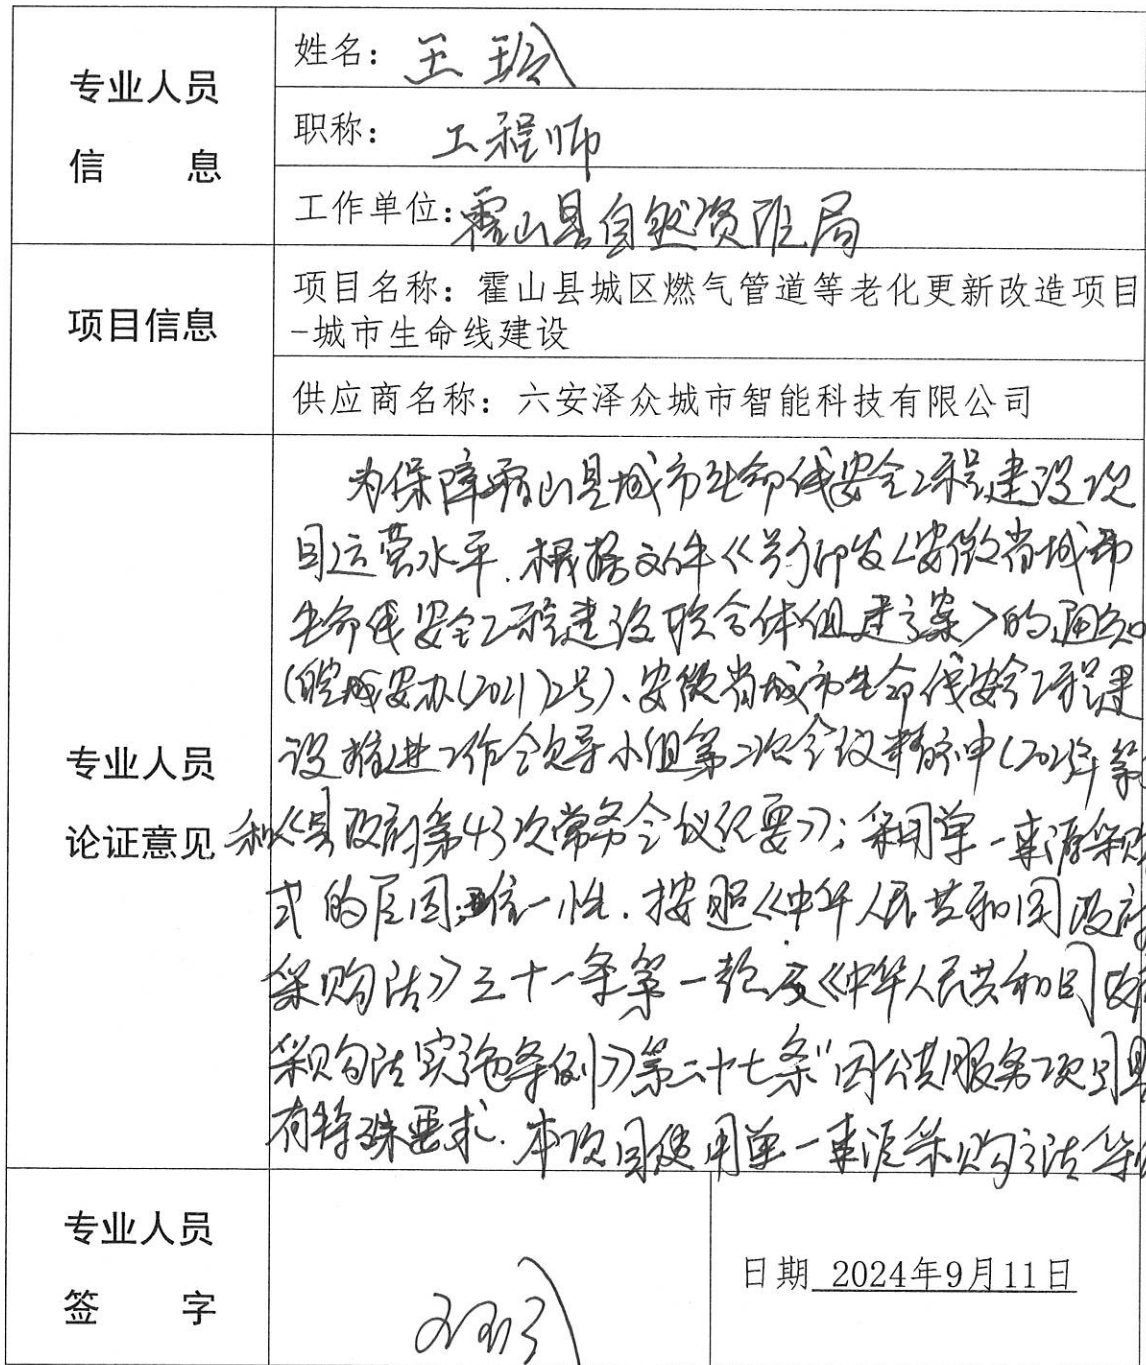 专业人员
信 息
姓名：王玲
职称：工程师
工作单位：霍山县自然资源局
项目信息
项目名称：霍山县城区燃气管道等老化更新改造项目
-城市生命线建设
供应商名称：六安泽众城市智能科技有限公司
专业人员
论证意见
为保障霍山县城市生命线安全工程建设项
目运营水平．根据文件《关于印发<安徽省城市
生命线安全工程建设联合体组建方案>的通知
(皖城安办(2021)2号)、安徽省城市生命线安全工程建
设推进工作领导小组第二次会议精神(202年第
和《县政府第43次常务会议纪要》；采用单一来源采购
式的原因：唯一性．按照《中华人民共和国政府
采购法》三十一条第一款及《中华人民共和国政府
采购法实施条例》第二十七条"因公共服务项目具
有特殊要求．本项目使用单一来源采购方法采购
专业人员
签 字
王玲
日期 2024年9月11日